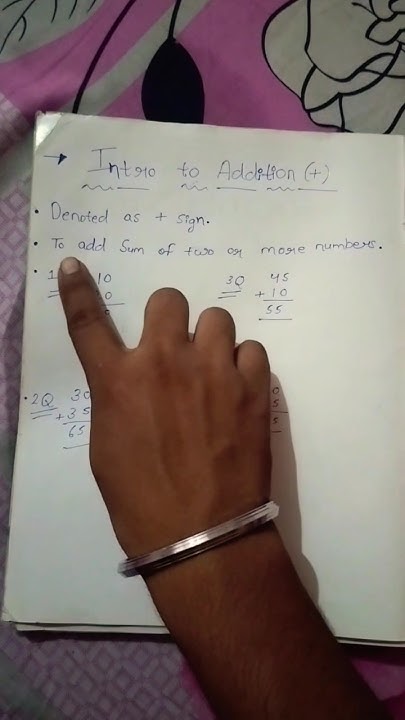 → Intro to Addition (+)
• Denoted as + sign.
• To add Sum of two or more numbers.
• 1
10
0
3Q 45
+ 10
55
• 2Q 30
+ 35
65
0
5
5